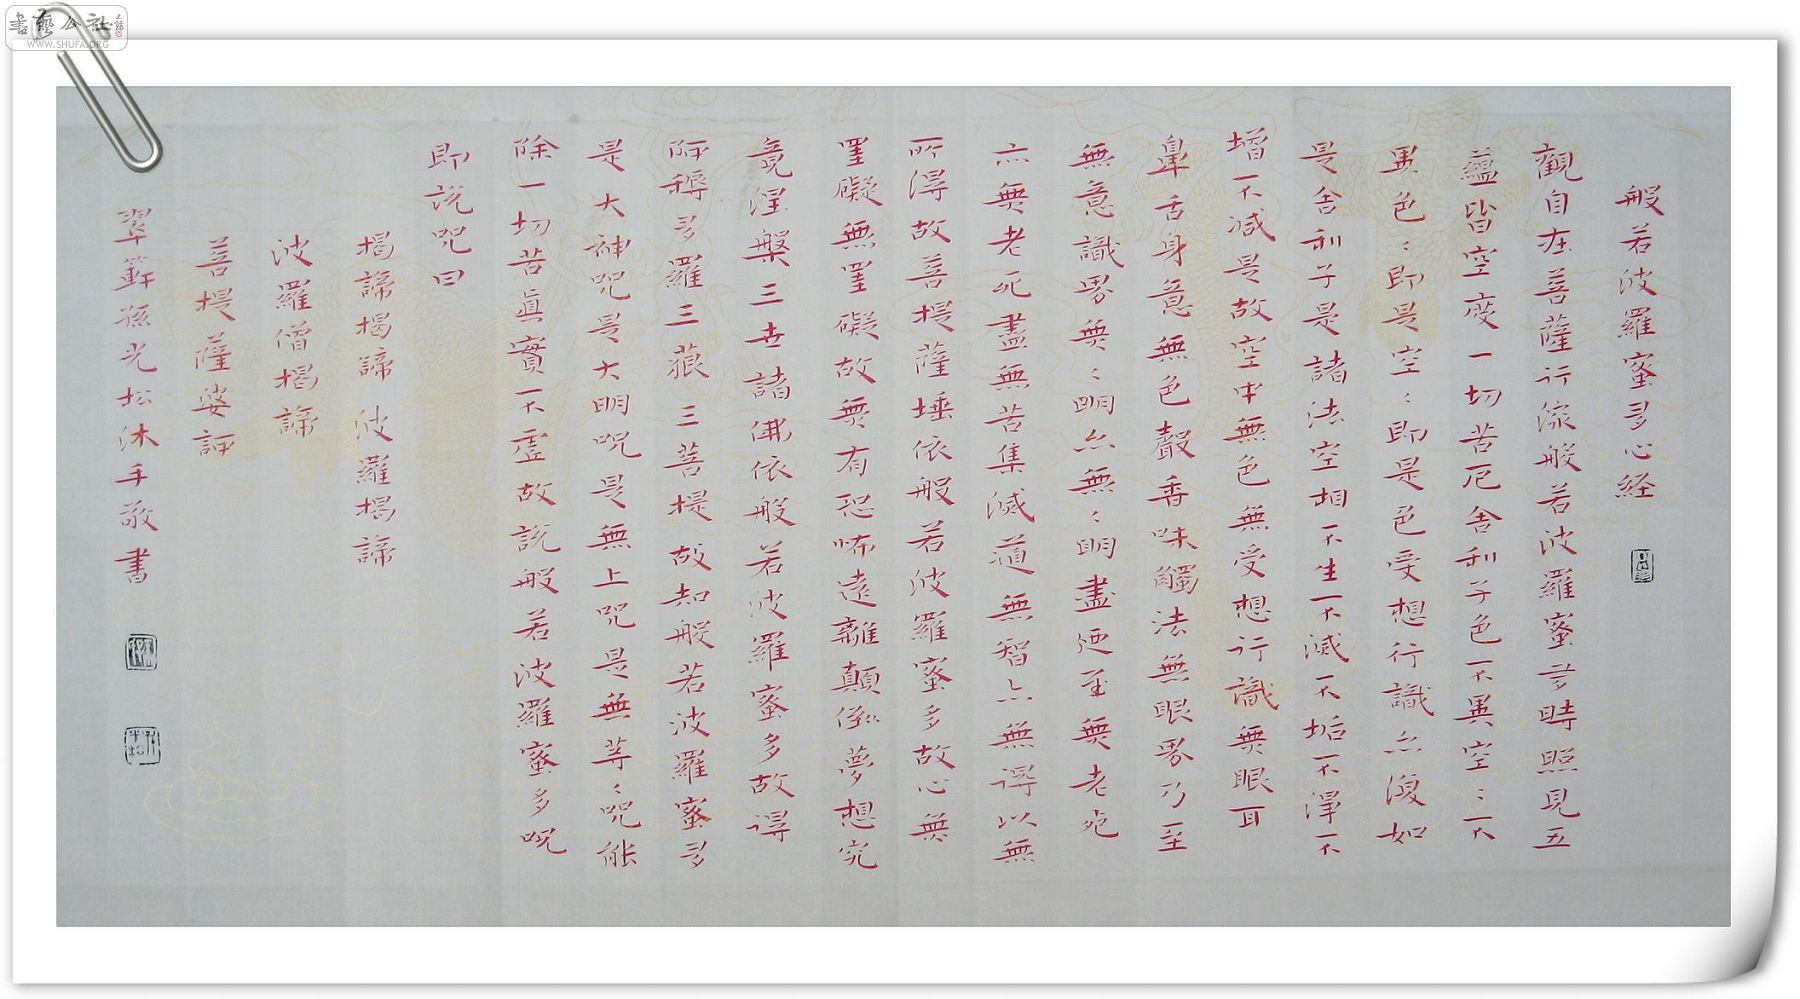 書藝公社
WWW.SHUFA.ORG
般若波羅蜜多心経
觀自在菩薩行深般若波羅蜜多時照見五
蘊皆空度一切苦厄舍利子色不異空〻不
異色〻即是空〻即是色受想行識亦復如
是舍利子是諸法空相不生不滅不垢不淨不
增不減是故空中無色無受想行識無眼耳
鼻舌身意無色聲香味觸法無眼界乃至
無意識界無〻明亦無〻明盡廼至無老死
亦無老死盡無苦集滅道無智亦無得以無
所得故菩提薩埵依般若波羅蜜多故心無
罣礙無罣礙故無有恐怖遠離顛倒夢想究
竟涅槃三世諸佛依般若波羅蜜多故得
阿耨多羅三藐三菩提故知般若波羅蜜多
是大神咒是大明咒是無上咒是無等〻咒能
除一切苦真實不虛故說般若波羅蜜多咒
即說咒曰
揭諦揭諦 波羅揭諦
波羅僧揭諦
菩提薩婆訶
翠孫光松沐手敬書